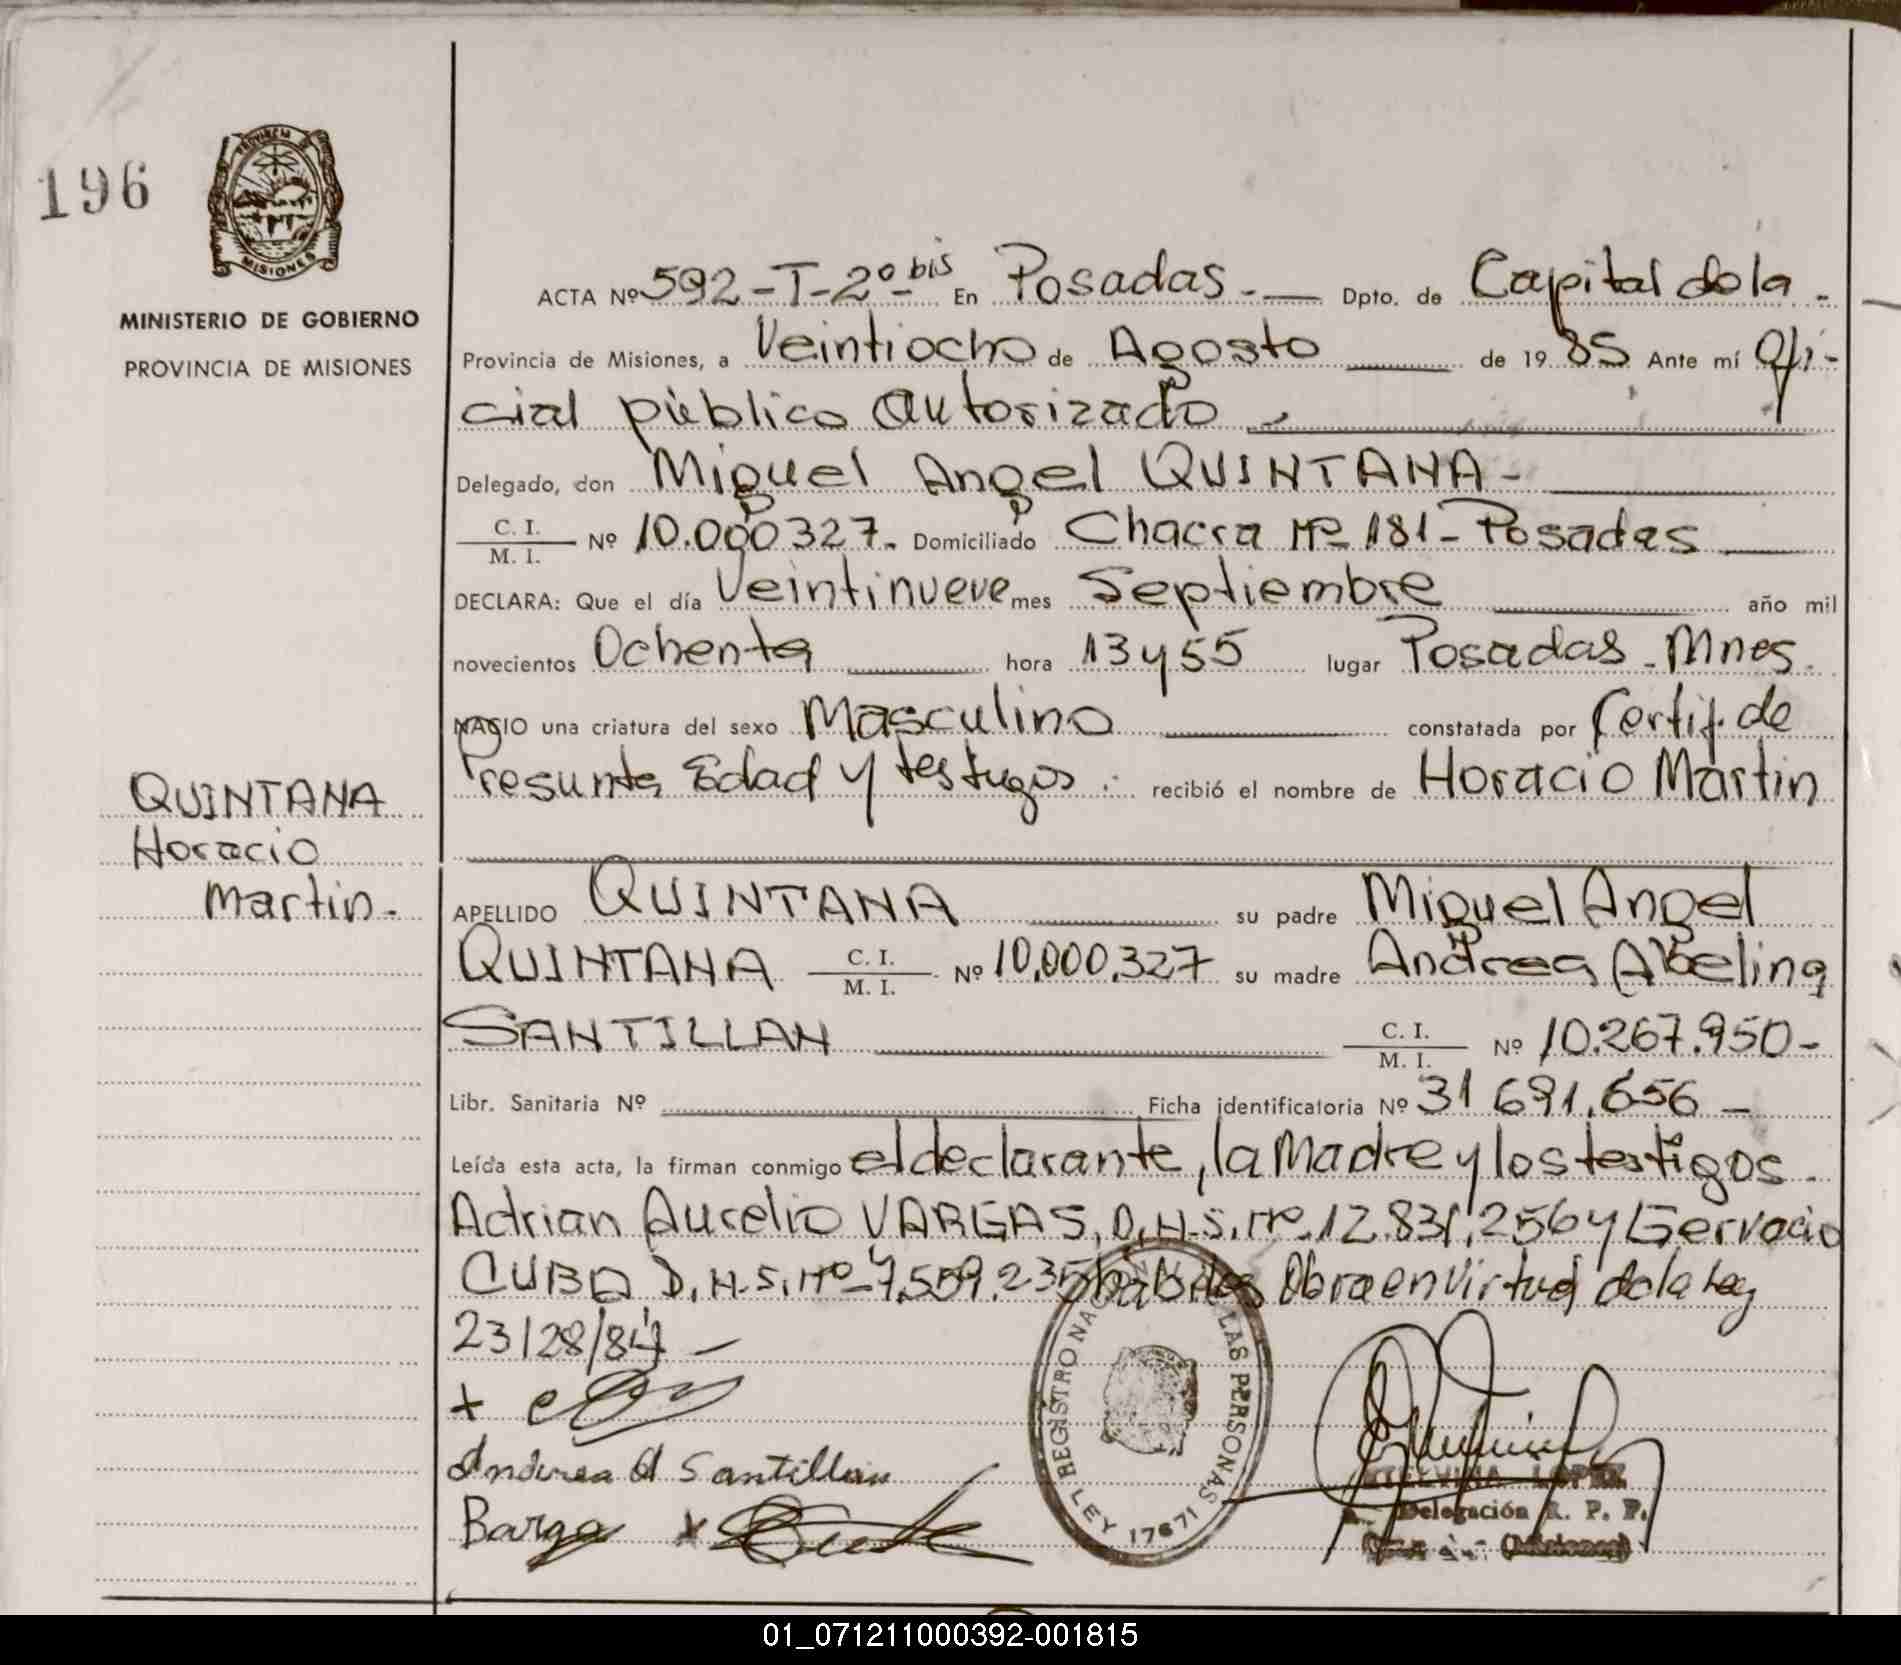 196
PROVINCIA
MISIONES
MINISTERIO DE GOBIERNO
PROVINCIA DE MISIONES
ACTA Nº 592-T-2º bis En Posadas.- Dpto. de Capital de la.
Provincia de Misiones, a Veintiocho de Agosto de 19 85 Ante mí Ofi-
cial público autorizado.-
Delegado, don Miguel Angel QUINTANA-
C. I.
M. I. Nº 10.000327. Domiciliado Chacra Nº 181-Posadas
DECLARA: Que el día Veintinueve mes Septiembre año mil
novecientos Ochenta hora 13 y 55 lugar Posadas-Mnes.
NACIO una criatura del sexo Masculino constatada por Certif. de
Presunta Edad y testigos. recibió el nombre de Horacio Martin
QUINTANA
Horacio
Martin.-
APELLIDO QUINTANA su padre Miguel Angel
QUINTANA C. I.
M. I. Nº 10.000.327 su madre Andrea Abelina
SANTILLAN C. I.
M. I. Nº 10.267.950-
Libr. Sanitaria Nº Ficha identificatoria Nº 31 691.656-
Leída esta acta, la firman conmigo el declarante, la Madre y los testigos.
Adrian Aurelio VARGAS, D.N.S. Nº 12.831.256 y Gervacio
CUBA D.N.S. Nº 7.559.235 habiles Obra en virtud de la Ley
23128/84-
Andrea A Santillan
REGISTRO NACIONAL DE LAS PERSONAS
LEY 17671
LOPEZ
Delegación R. P. P.
(Misiones)
01_071211000392-001815